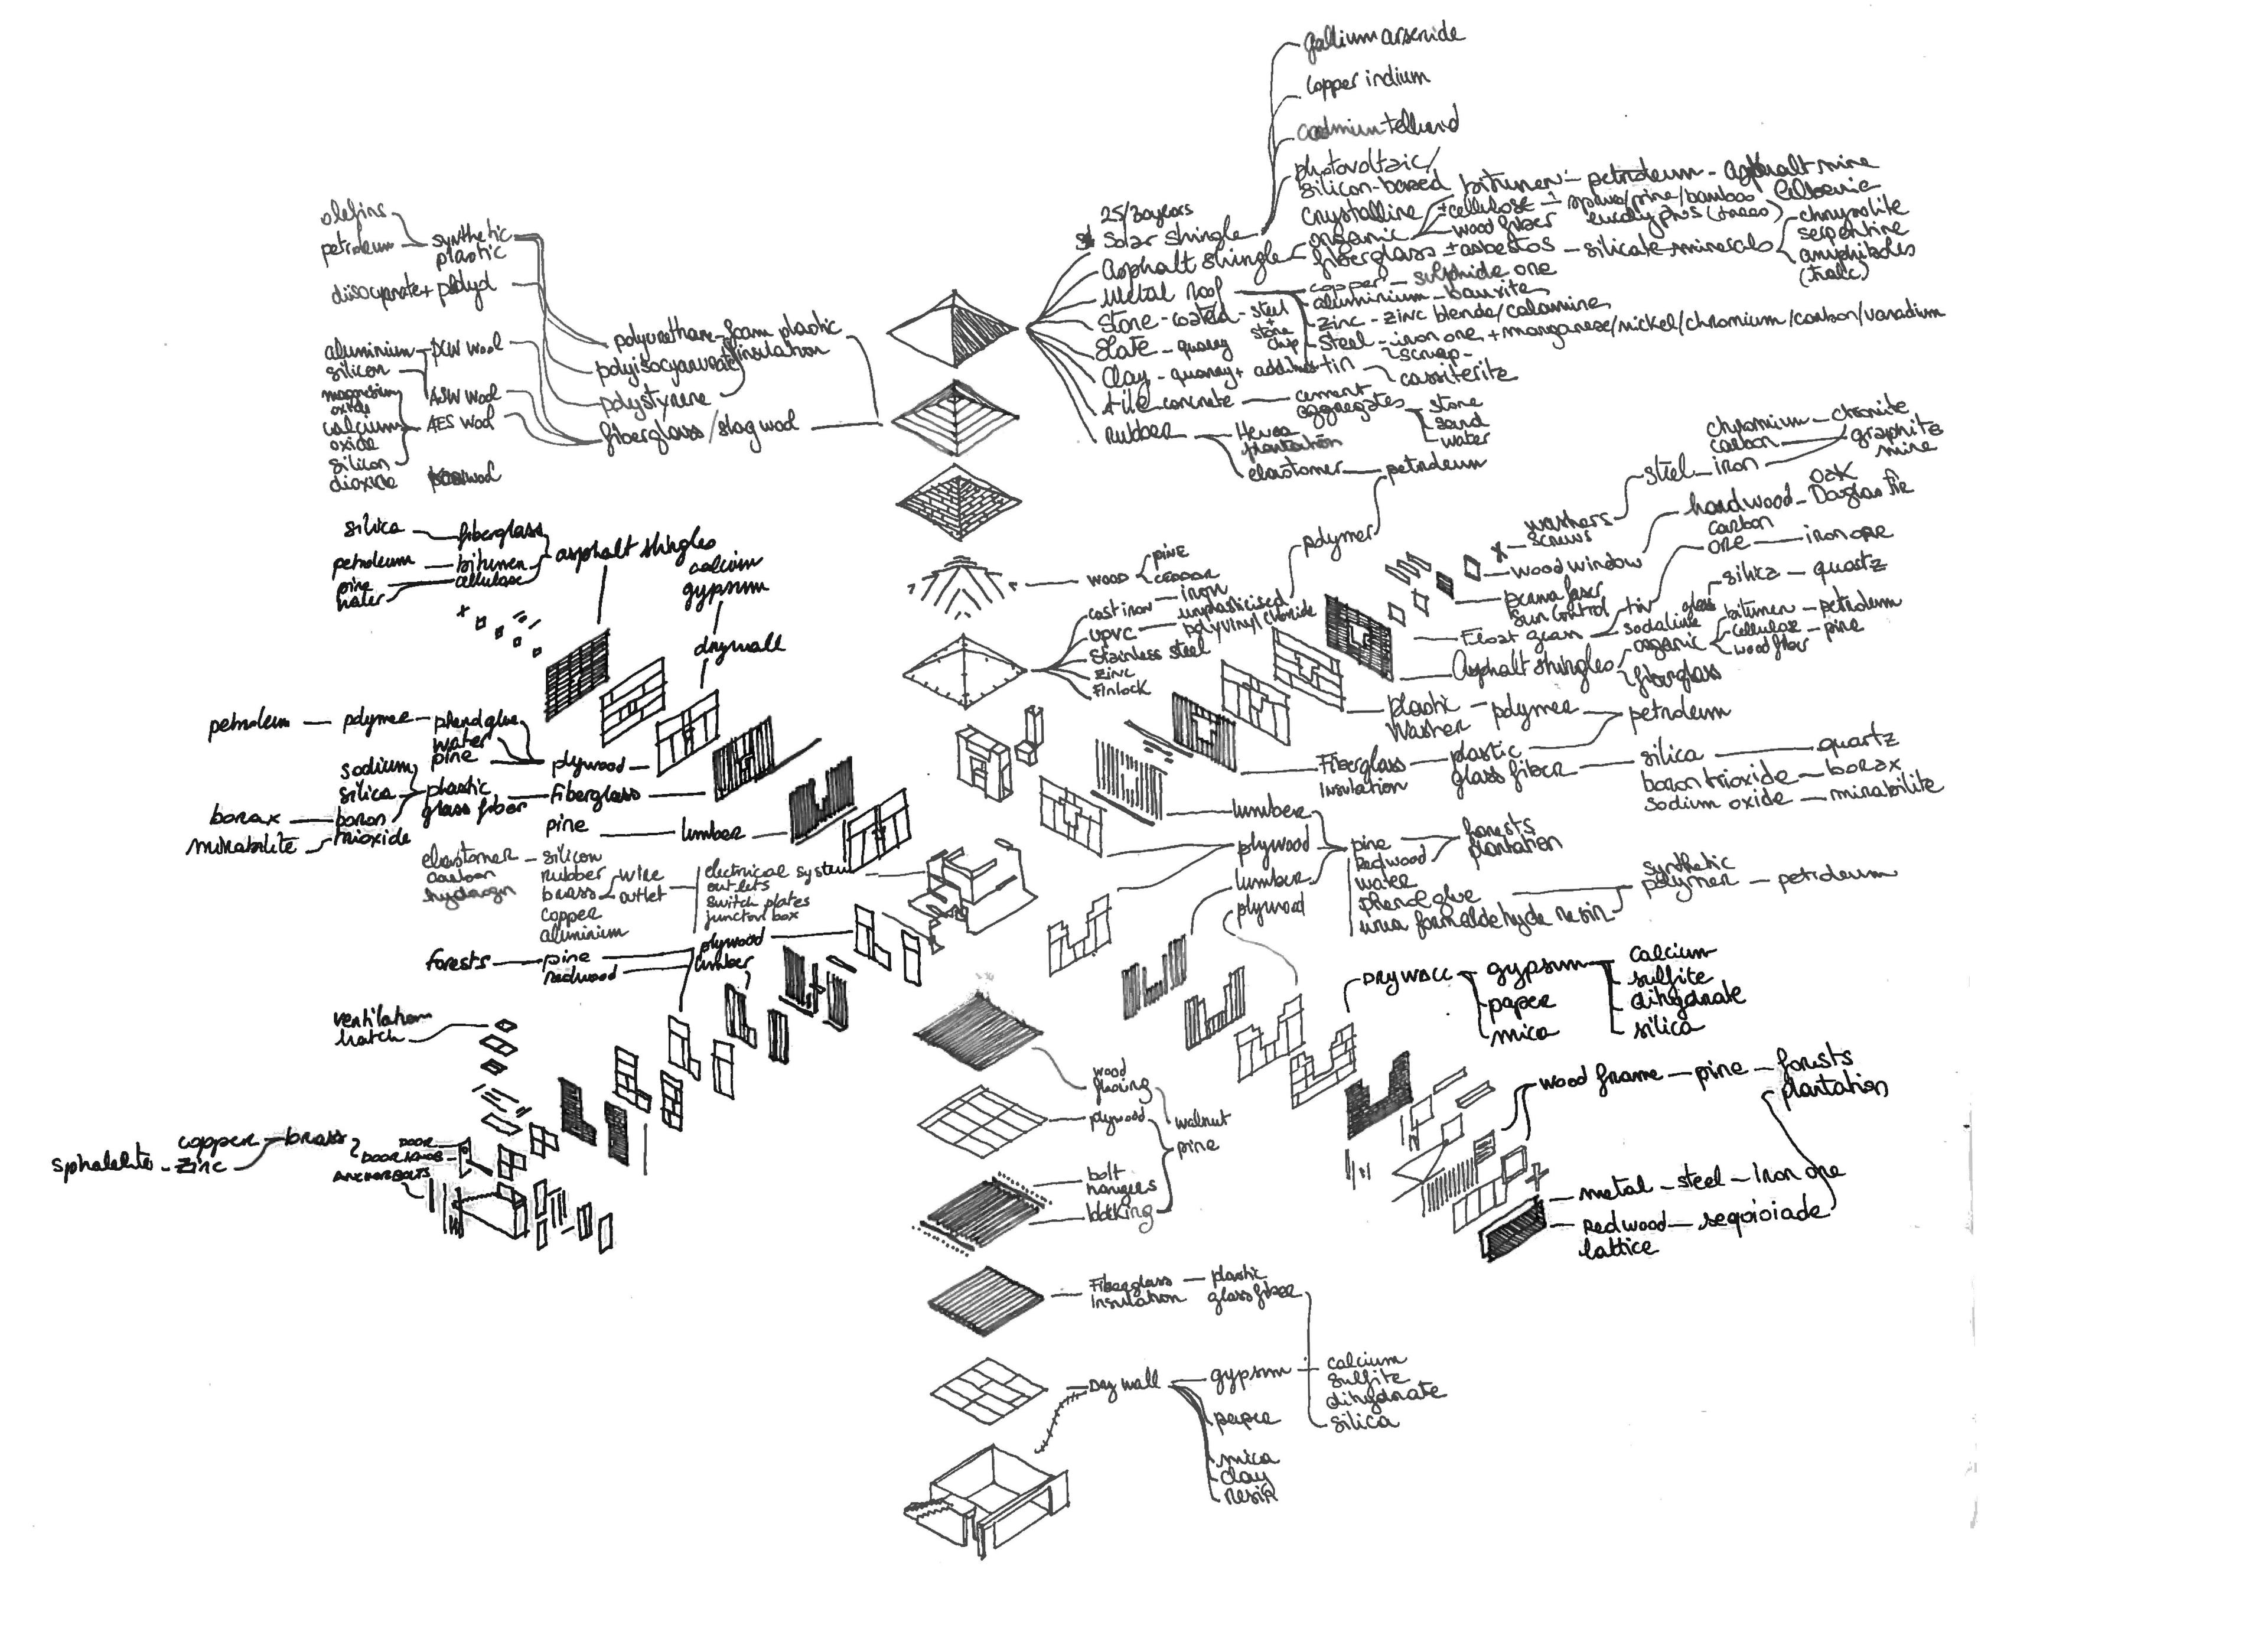 gallium arsenide
copper indium
photovoltaic/
silicon-based
bitumen - petroleum - asphalt mine
crystalline
± cellulose - /pine/bamboo
organic
wood fiber
25/30years
Solar shingle
Asphalt shingle
fiberglass ± asbestos - silicate minerals
chrysolite
serpentine
amphiboles
(talc)
Metal roof
copper - sulphide ore
aluminium - bauxite
zinc - zinc blende/calamine
steel - iron ore + manganese/nickel/chromium/carbon/vanadium
scrap
Stone-coated - steel
+
stone
chip
Slate - quarry
Clay - quarry + tin
cassiterite
tile concrete
cement
aggregates
stone
sand
water
rubber
Hevea
plantation
elastomer - petroleum
polymer
olefins
petroleum - synthetic
plastic
aluminium
silicon
magnesium
oxide
calcium
oxide
silicon
dioxide
ASW wool
AES wool
polyurethane-foam plastic
insulation
polystyrene
fiberglass/slag wool
silica - fiberglass
petroleum - bitumen
pine
water
cellulose
asphalt shingles
calcium
gypsum
drywall
wood
pine
cast iron - iron
UPVC
unplasticised
polyvinyl chloride
Stainless steel
zinc
Finlock
washers
screws
steel - iron
chromium
carbon
graphite
mine
wood window
hardwood
oak
carbon
ore - iron ore
Sun control
tin
sodalime
glass
silica - quartz
Asphalt shingles
organic
bitumen - petroleum
cellulose - pine
wood fiber
fiberglass
plastic - polymer - petroleum
Washer
Fiberglass
Insulation
plastic
glass fiber
silica - quartz
boron trioxide - borax
sodium oxide - mirabilite
petroleum - polymer - phenol glue
water
pine
plywood
sodium
silica
boron
trioxide
borax
mirabilite
plastic
glass fiber
Fiberglass
pine - lumber
elastomer
carbon
hydrogen
silicon
rubber
brass
copper
aluminium
wire
outlet
electrical system
outlets
switch plates
junction box
forests - pine
redwood
plywood
lumber
lumber
plywood
lumber
plywood
pine
Redwood
water
phenol glue
urea formaldehyde resin
forests
plantation
synthetic
polymer - petroleum
ventilation
hatch
DRYWALL
gypsum
paper
mica
calcium
sulfite
dihydrate
silica
wood frame - pine - forests
plantation
metal - steel - iron ore
Redwood - seqoioiade
lattice
sphalelite - zinc
copper - brass
DOOR
DOOR KNOB
ANCHOR BOLTS
wood
plywood
walnut
pine
bolt
hangers
Fiberglass
Insulation
plastic
glass fiber
Dry wall
gypsum
paper
mica
clay
resin
calcium
sulfite
dihydrate
silica